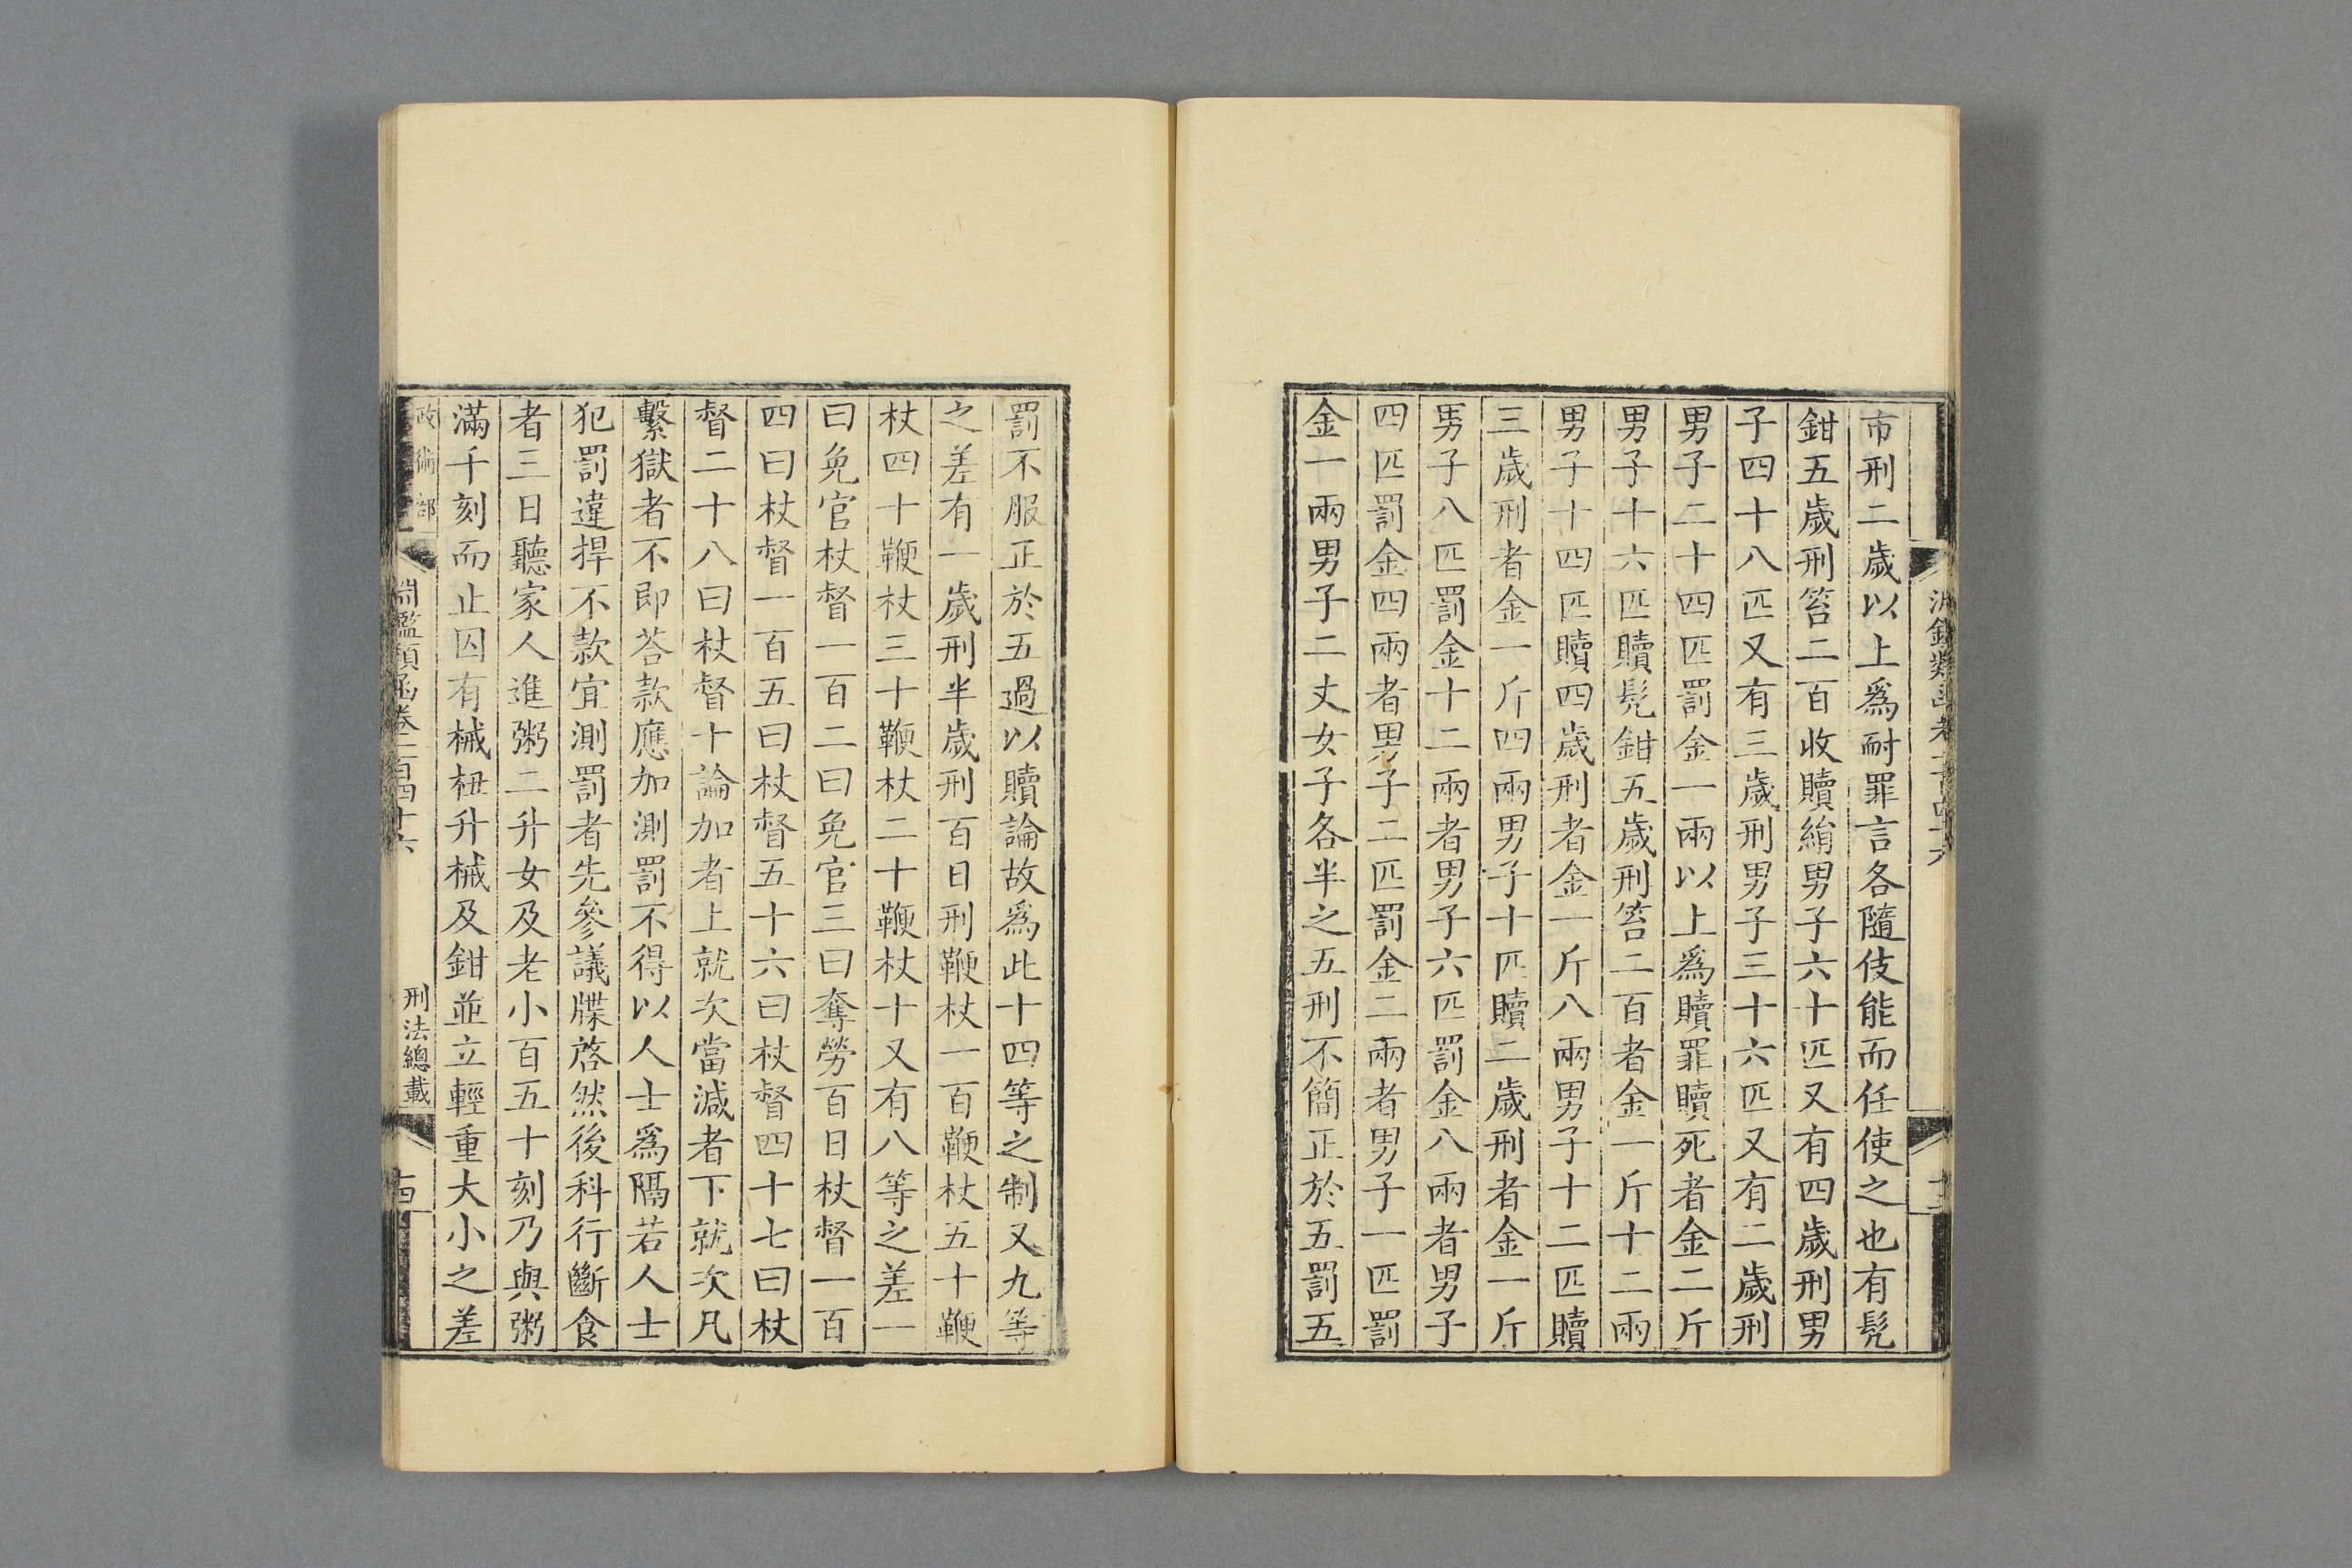 市刑二歲以上爲耐罪言各隨伎能而任使之也有髡
鉗五歲刑笞二百收贖絹男子六十匹又有四歲刑男
子四十八匹又有三歲刑男子三十六匹又有二歲刑
男子二十四匹罰金一兩以上爲贖罪贖死者金二斤
男子十六匹贖髡鉗五歲刑笞二百者金一斤十二兩
男子十四匹贖四歲刑者金一斤八兩男子十二匹贖
三歲刑者金一斤四兩男子十匹贖二歲刑者金一斤
男子八匹罰金十二兩者男子六匹罰金八兩者男子
四匹罰金四兩者男子二匹罰金二兩者男子一匹罰
金一兩男子二丈女子各半之五刑不簡正於五罰五
罰不服正於五過以贖論故爲此十四等之制又九等
之差有一歲刑半歲刑百日刑鞭杖一百鞭杖五十鞭
杖四十鞭杖三十鞭杖二十鞭杖十又有八等之差一
曰免官杖督一百二曰免官三曰奪勞百日杖督一百
四曰杖督一百五曰杖督五十六曰杖督四十七曰杖
督二十八曰杖督十論加者上就次當減者下就次凡
繫獄者不即荅款應加測罰不得以人士爲隔若人士
犯罰違捍不款宜測罰者先參議牒啓然後科行斷食
者三日聽家人進粥二升女及老小百五十刻乃與粥
滿千刻而止囚有械杻升械及鉗並立輕重大小之差
政術部
淵鑑類函卷一百四十六
刑法總載